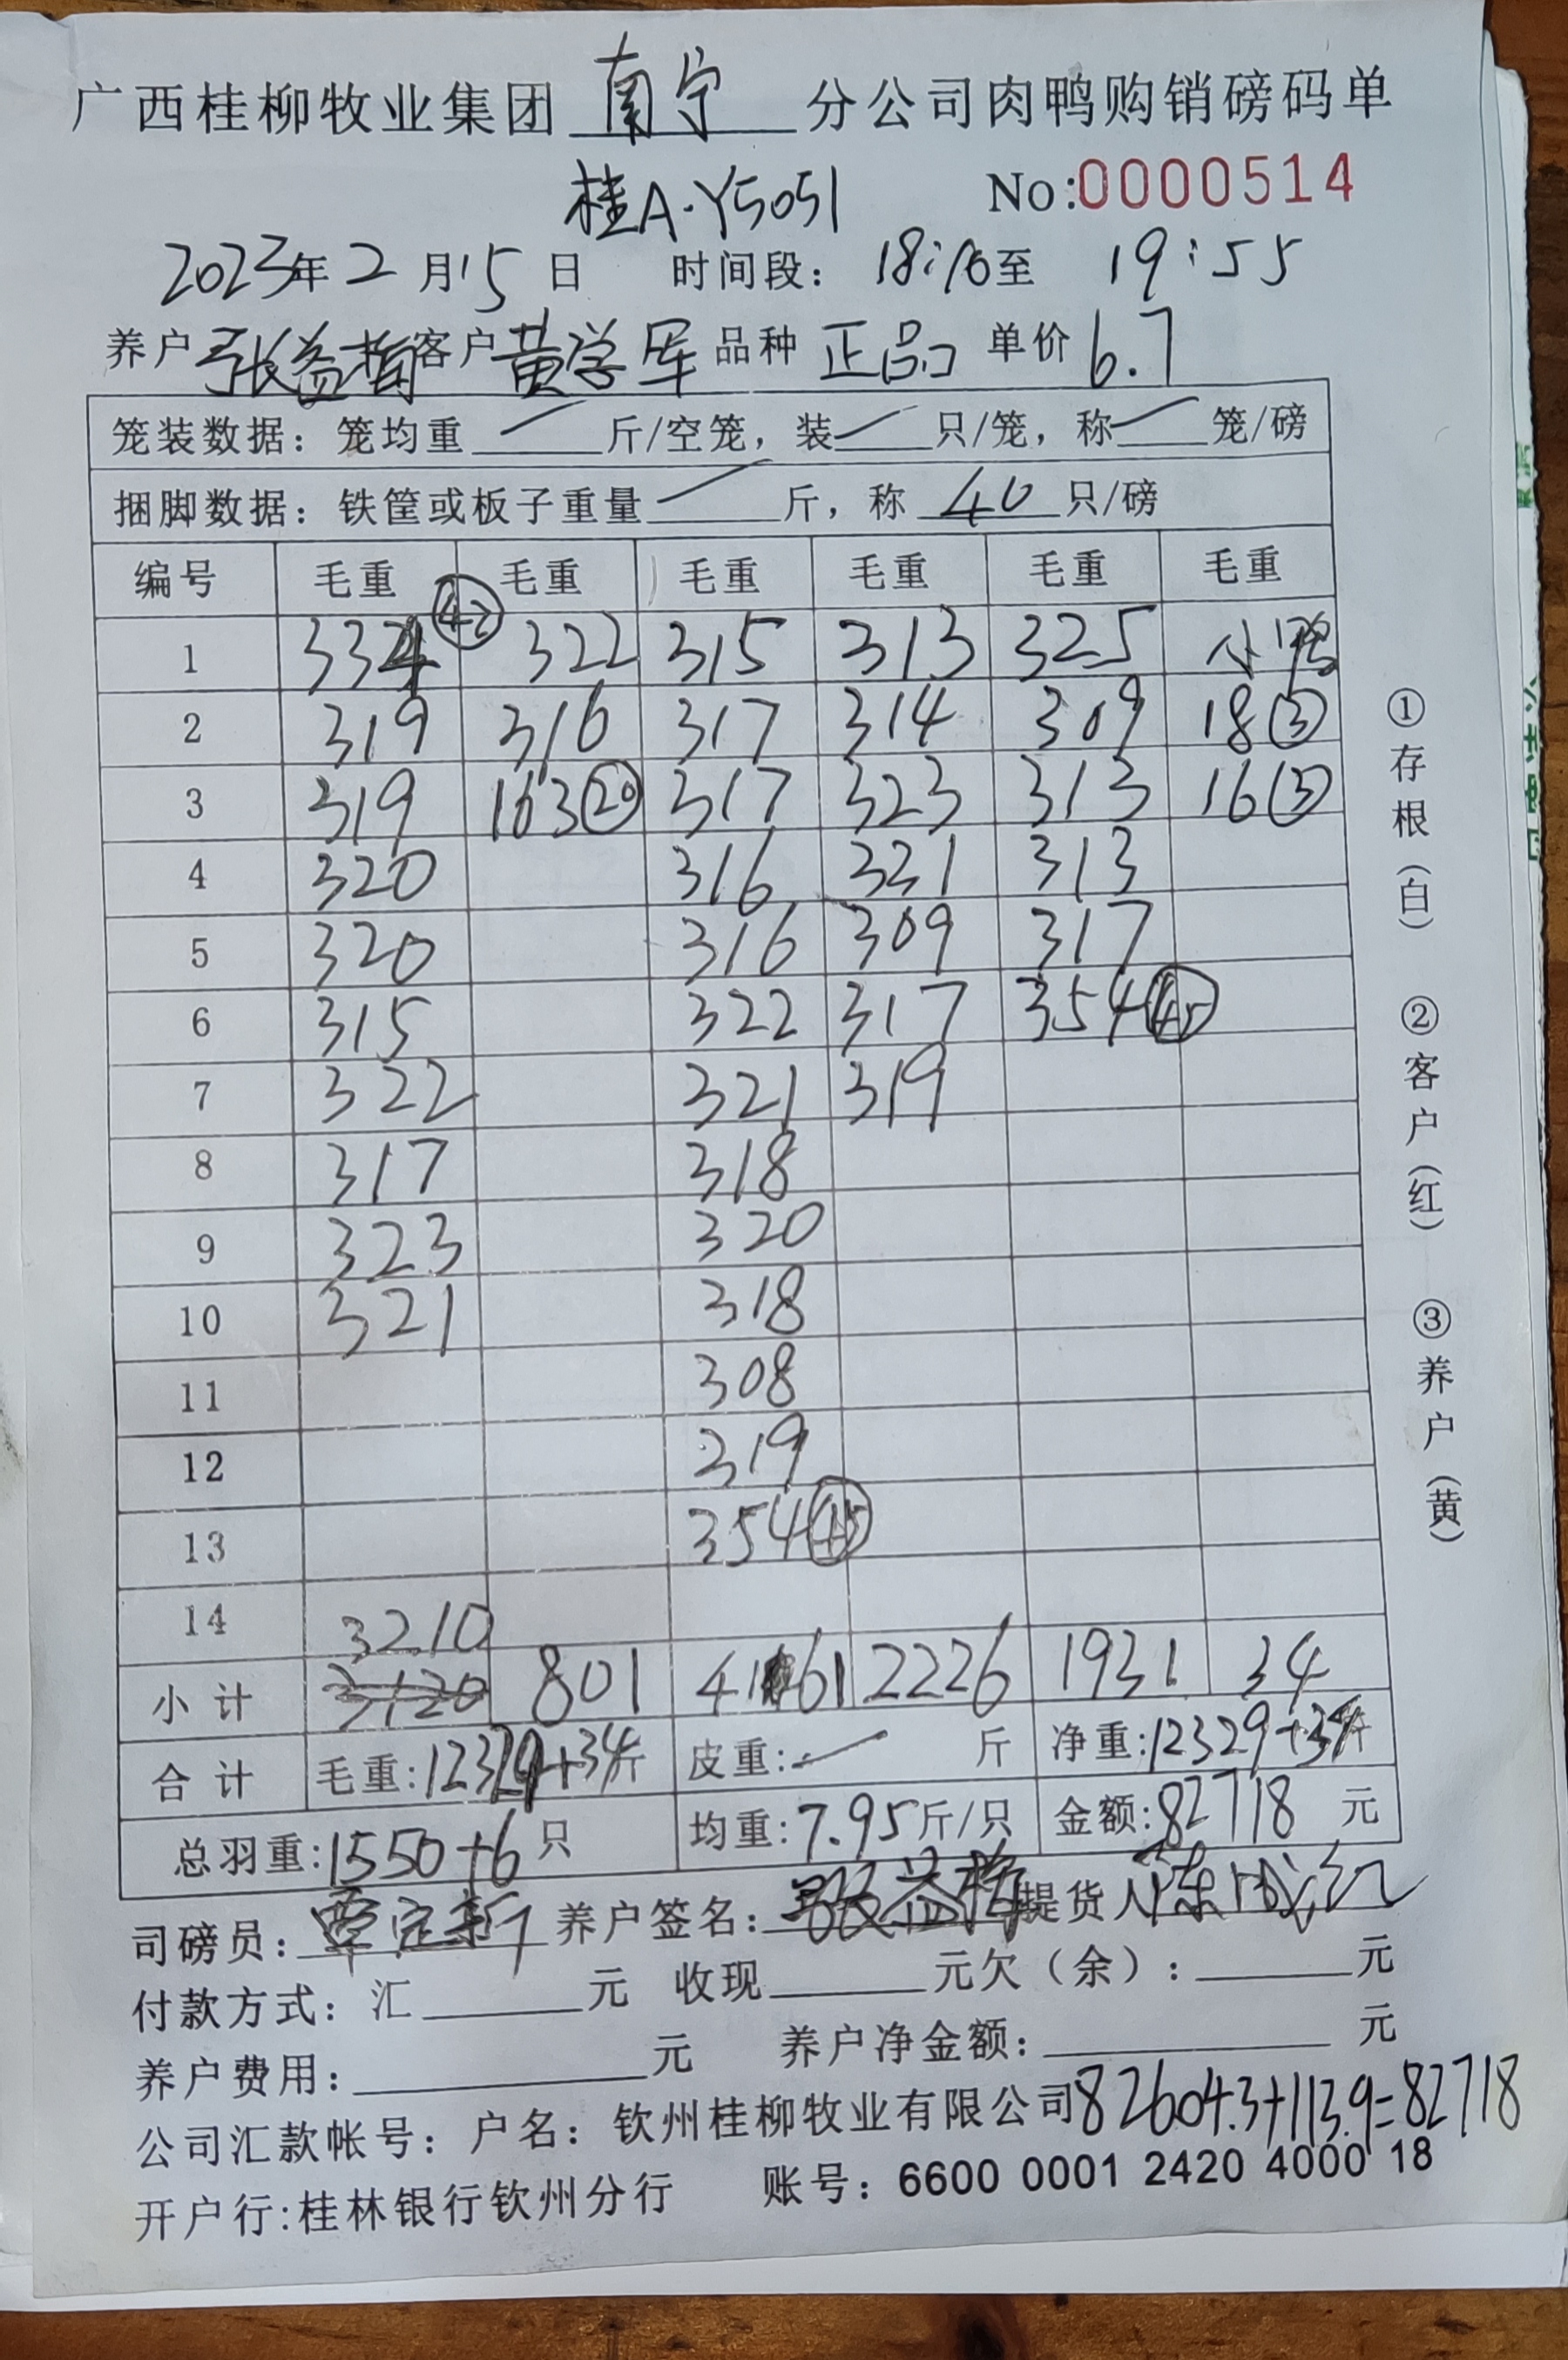 广西桂柳牧业集团南宁分公司肉鸭购销磅码单
桂A·Y5051 No:0000514
2023年2月15日 时间段: 18:10至 19:55
养户张益梅客户黄学军 品种 正品 单价6.7
笼装数据: 笼均重 / 斤/空笼, 装 / 只/笼, 称 / 笼/磅
捆脚数据: 铁筐或板子重量 / 斤, 称 40 只/磅
编号 毛重 毛重 毛重 毛重 毛重 毛重
1 334 (42) 322 315 313 325 小鸭
2 319 316 317 314 309 18(3)
3 319 163(20) 317 323 313 16(3)
4 320 316 321 313
5 320 316 309 317
6 315 322 317 354(45)
7 322 321 319
8 317 318
9 323 320
10 321 318
11 308
12 319
13 354(45)
14 3210
小计 3120 801 4161 2226 1931 34
合计 毛重:12329+34斤 皮重: / 斤 净重:12329+34斤
总羽重:1550+6只 均重:7.95斤/只 金额:82718 元
司磅员: 覃定新 养户签名: 张益梅 提货人陈成红
付款方式: 汇 元 收现 元欠(余): 元
养户费用: 元 养户净金额: 元
公司汇款帐号: 户名: 钦州桂柳牧业有限公司82604.3+113.9=82718
开户行:桂林银行钦州分行 账号: 6600 0001 2420 4000 18
①存根(白) ②客户(红) ③养户(黄)